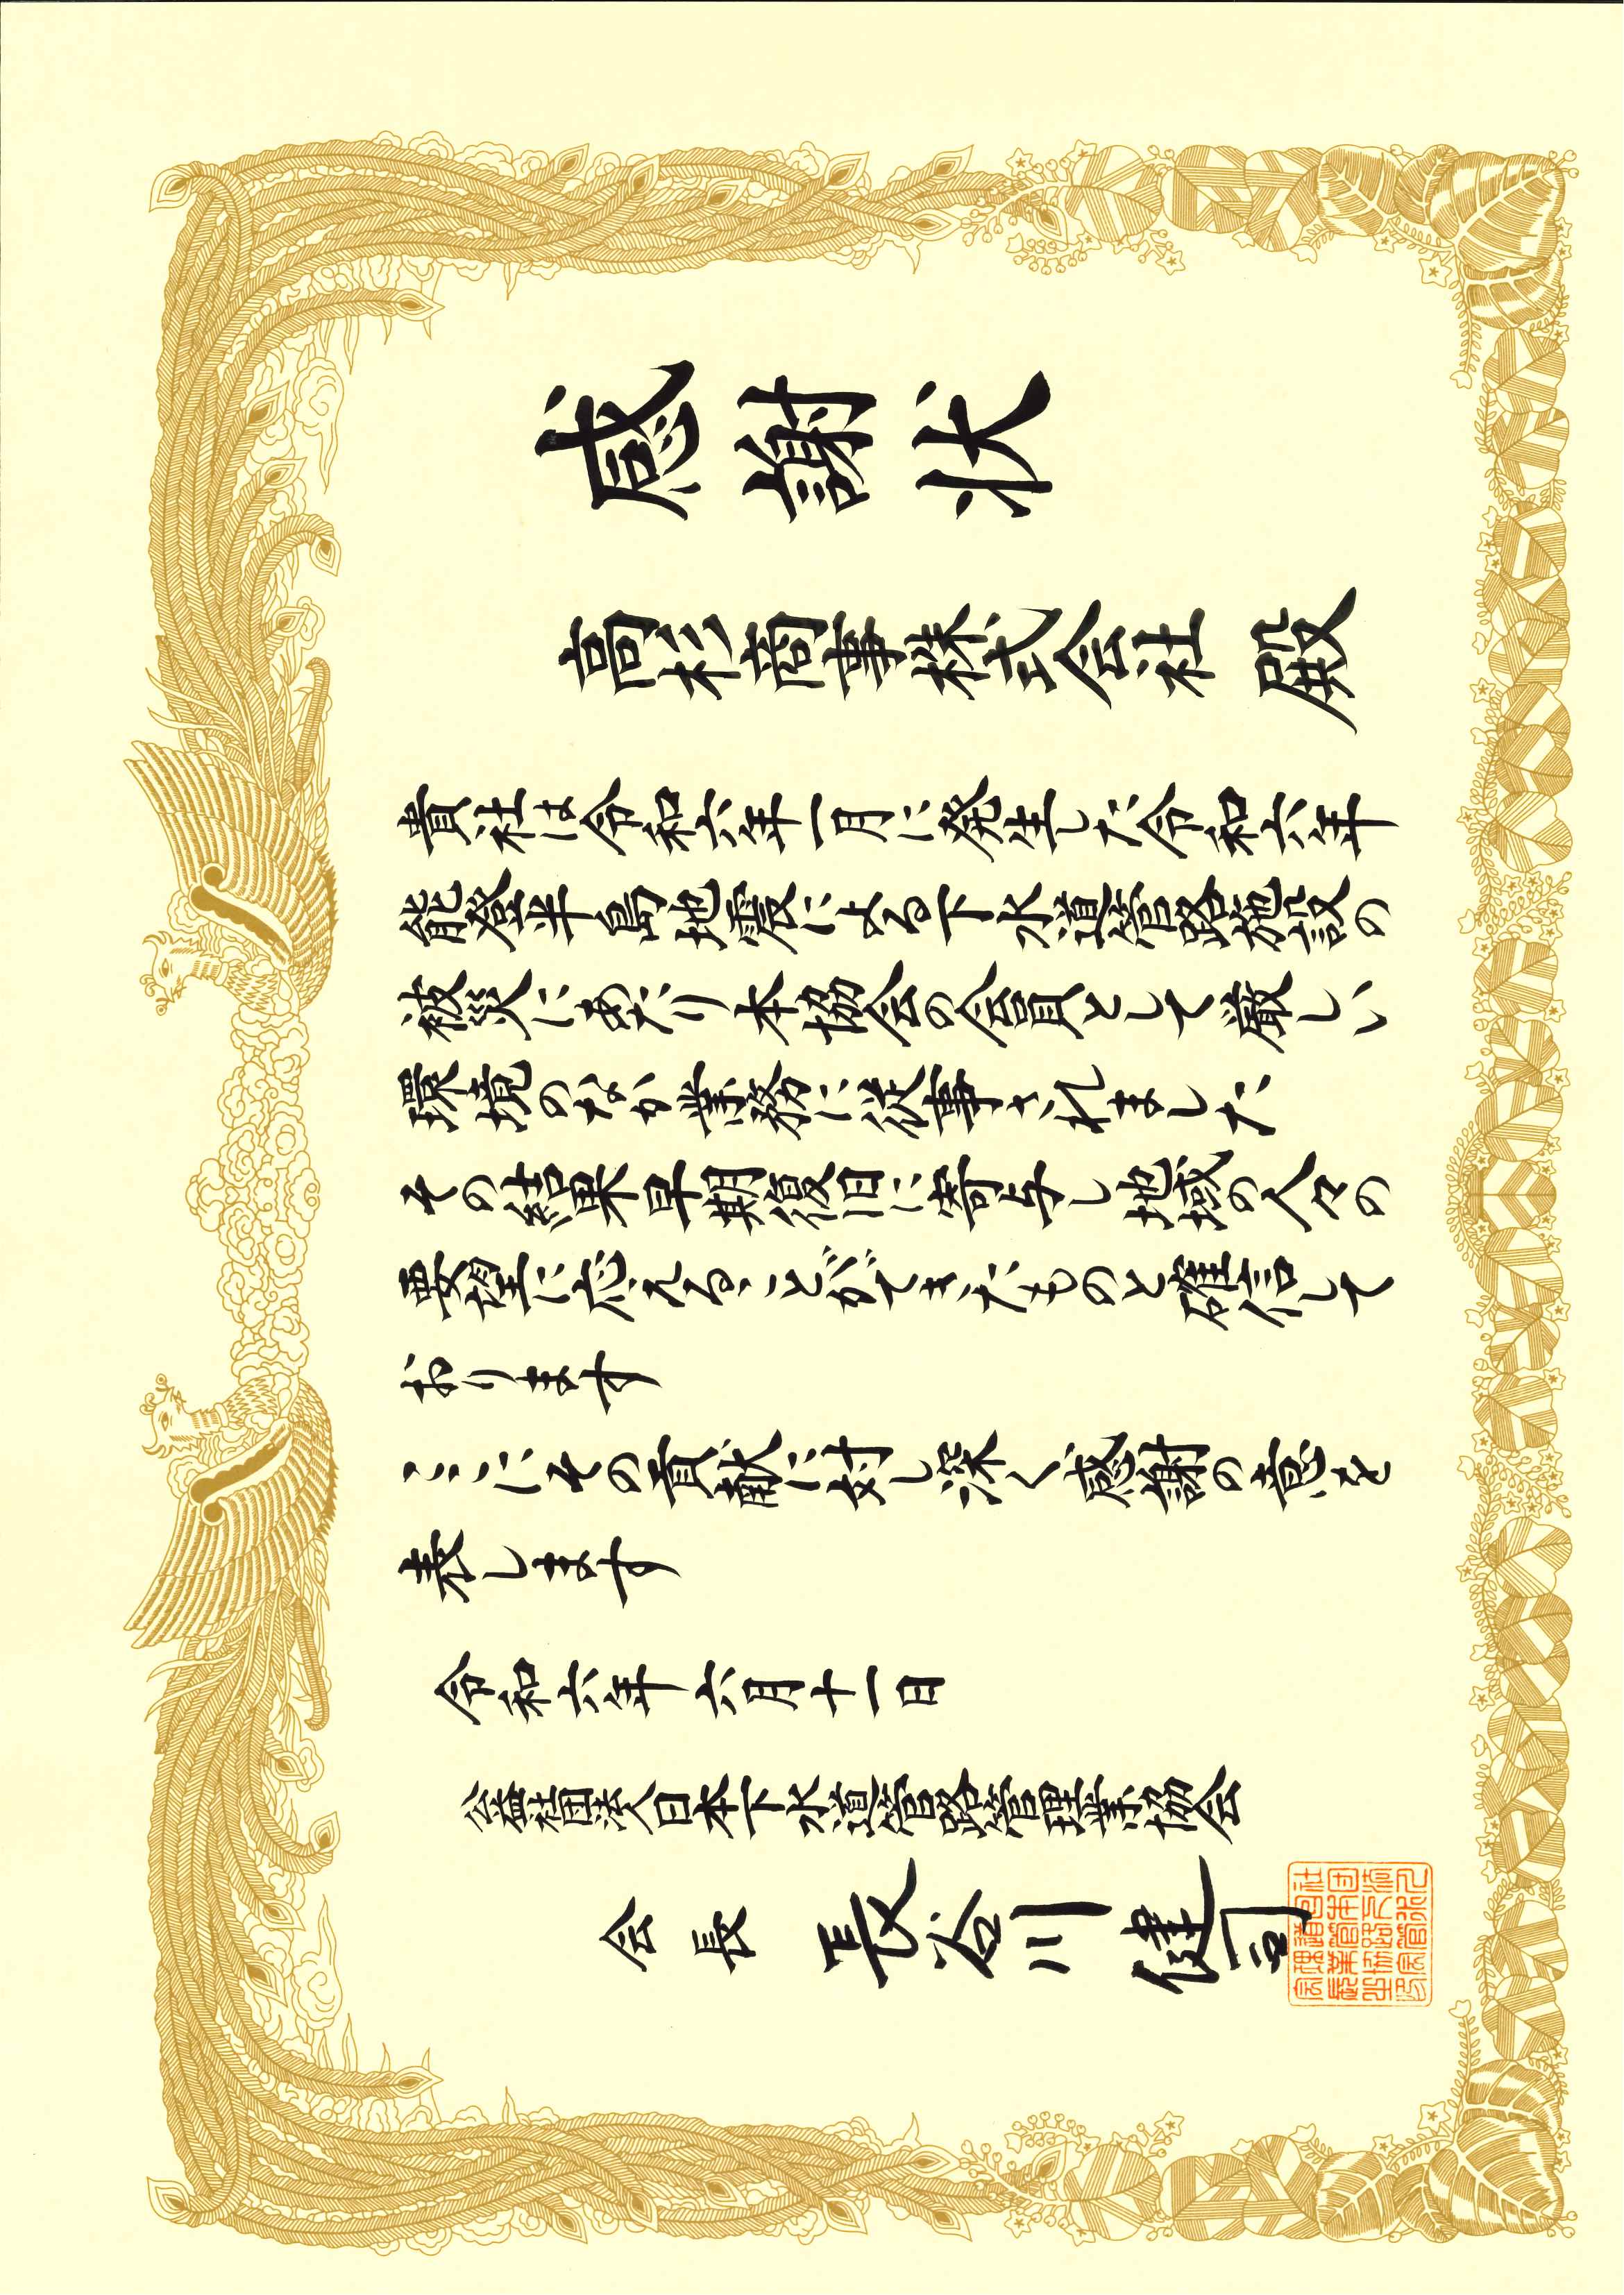 感謝状
高杉商事株式会社 殿
貴社は令和六年一月に発生した令和六年
能登半島地震による下水道管路施設の
被災にあたり本協会の会員として厳しい
環境のなか業務に従事されました
その結果早期復旧に寄与し地域の人々の
要望に応えることができたものと確信して
おります
ここにその貢献に対し深く感謝の意を
表します
令和六年六月十一日
公益社団法人日本下水道管路管理業協会
会長 長谷川健司